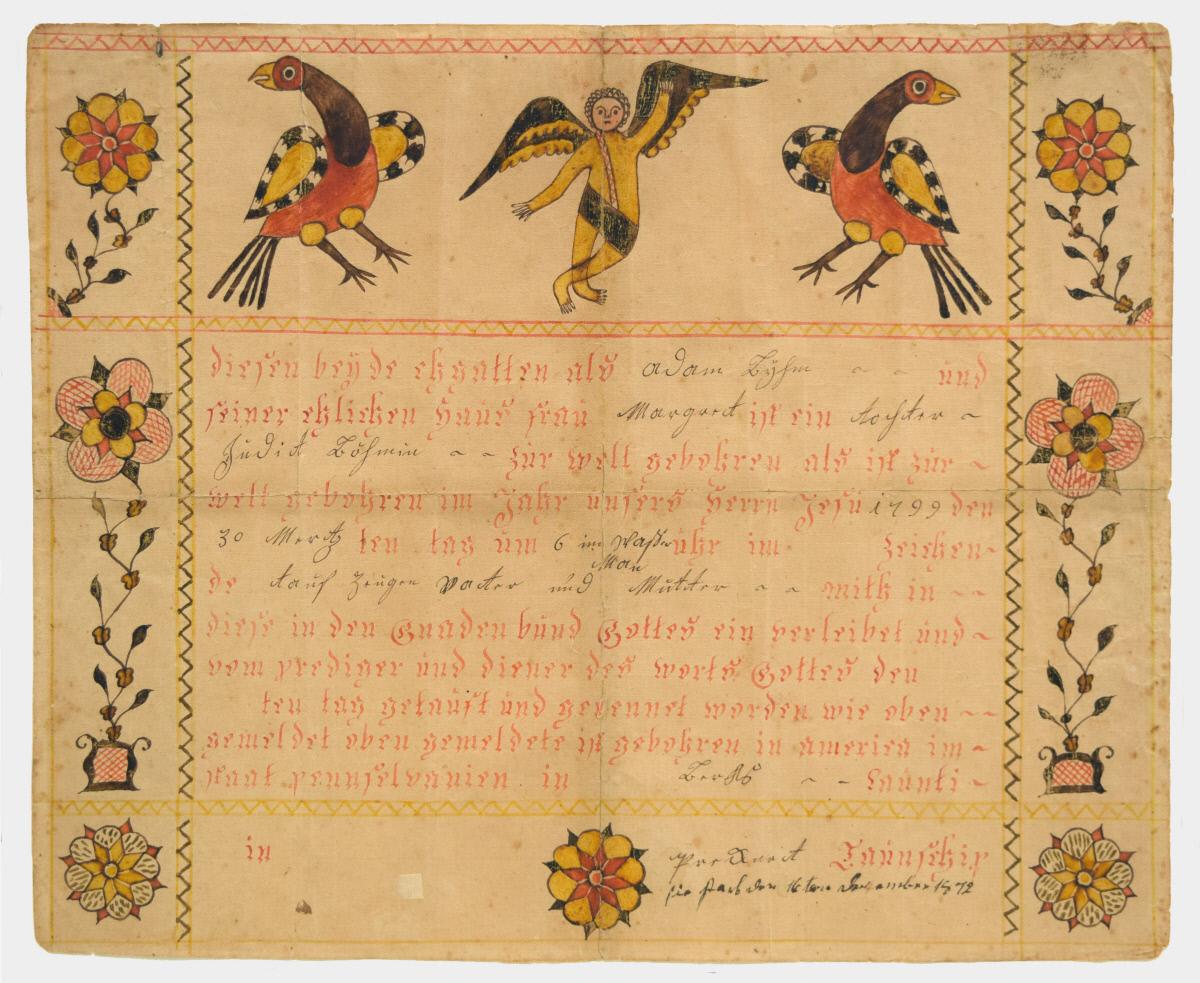 diesen beÿde ehgatten als adam Böhm - - und
seiner ehlichen Haus frau Margret ist ein tochter -
Judit Böhmin - - zur welt gebohren als ist zur -
welt gebohren im Jahr unsers Herrn Jesu 1799 den
30 Mertz ten tag um 6 uhr im Waßer Man zeichen -
de tauf zeugen Vater und Mutter - - mith in - -
diese in den Gnaden bund Gottes ein verleibet und -
vom prediger und diener des worts Gottes den
ten tag getauft und genennet worden wie oben - -
gemeldet oben gemeldete ist gebohren in america im -
staat pennselvanien in Berks - - Caunti -
in Taunschip
sie starb den 16ten December 1872